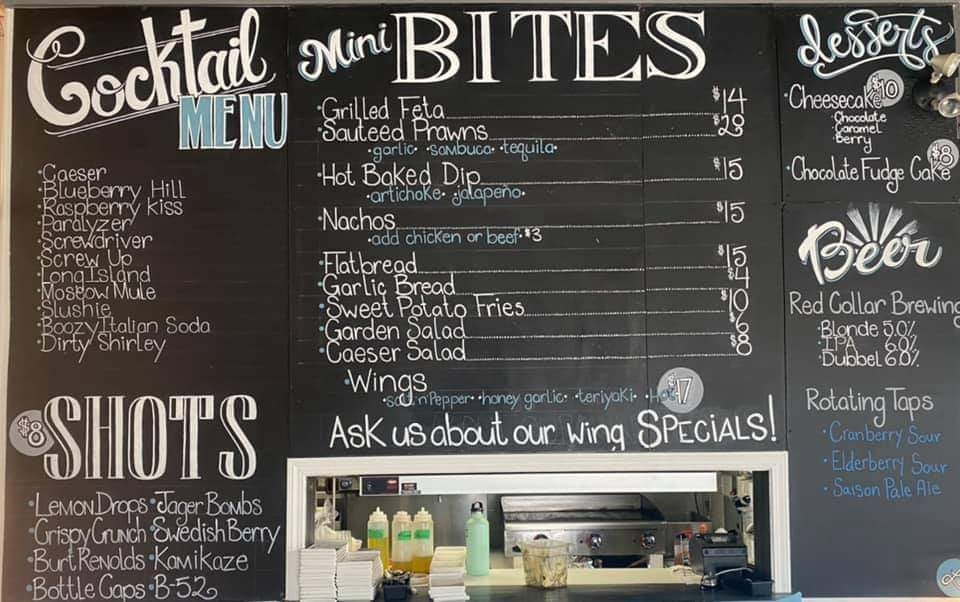 Cocktail
MENU
•Caeser
•Blueberry Hill
•Raspberry Kiss
•Paralyzer
•Screwdriver
•Screw Up
•Long Island
•Moscow Mule
•Slushie
•Boozy Italian Soda
•Dirty Shirley
$8 SHOTS
•Lemon Drops •Jager Bombs
•Crispy Crunch •Swedish Berry
•Burt Renolds •Kamikaze
•Bottle Caps •B-52
Mini BITES
•Grilled Feta $14
•Sauteed Prawns $23
•garlic• sambuca •tequila•
•Hot Baked Dip $15
•artichoke• jalapeño•
•Nachos $15
•add chicken or beef•$3
•Flatbread $15
•Garlic Bread $4
•Sweet Potato Fries $10
•Garden Salad $6
•Caeser Salad $8
•Wings $17
•salt n Pepper• honey garlic• teriyaki• Hot
Ask us about our wing SPECIALS!
desserts
•Cheesecake $10
•Chocolate
•Caramel
•Berry
•Chocolate Fudge Cake $8
Beer
Red Collar Brewing
•Blonde 5.0%
•IPA 6.0%
•Dubbel 6.0%
Rotating Taps
•Cranberry Sour
•Elderberry Sour
•Saison Pale Ale